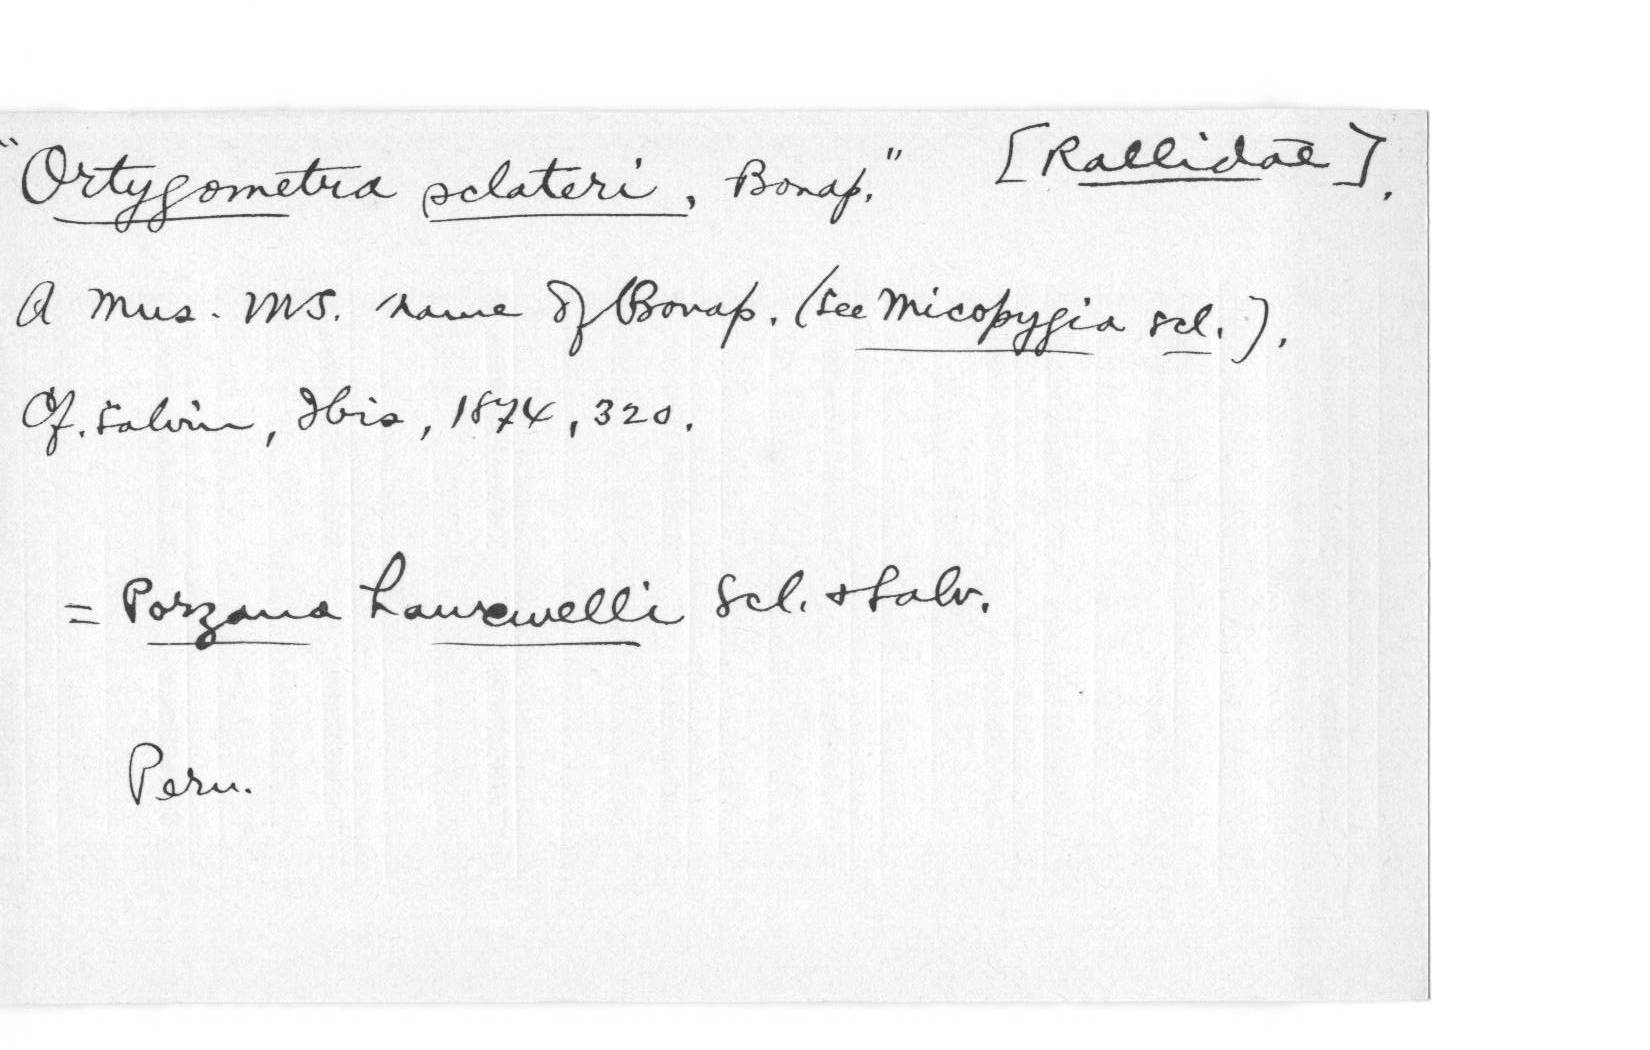 "Ortygometra sclateri, Bonap." [Rallidae].
A Mus. MS. name of Bonap. (See Micopygia scl.).
Cf. Salvin, Ibis, 1874, 320.
= Porzana hauxwelli Scl. & Salv.
Peru.